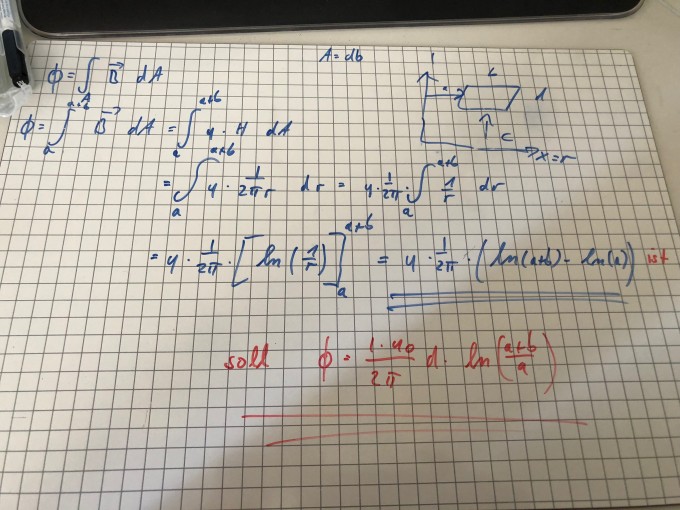 A = db
I
b
d
a
c
x=r
ϕ = ∫_A B⃗ dA
ϕ = ∫_a^{a+b} B⃗ dA = ∫_a^{a+b} μ · H dA
= ∫_a^{a+b} μ · \frac{I}{2πr} dr = μ · \frac{I}{2π} · ∫_a^{a+b} \frac{1}{r} dr
= μ · \frac{I}{2π} · [ln(\frac{1}{r})]_a^{a+b} = μ · \frac{I}{2π} · (ln(a+b) - ln(a)) ist
soll ϕ = \frac{I · μ₀}{2π} d · ln(\frac{a+b}{a})